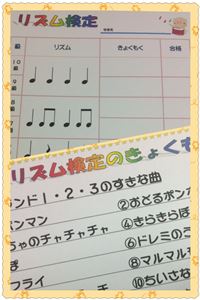 リズム検定
リズム きょくもく 合格
級
10級
9級
8級
リズム検定のきょくも
ンド1・2・3のすきな曲
ンマン ②おどるポンポ
ちゃのチャチャチャ ④きらきらぼ
ぽ ⑥ドレミのう
フライ ⑧マルマルモ
⑩ちいさな